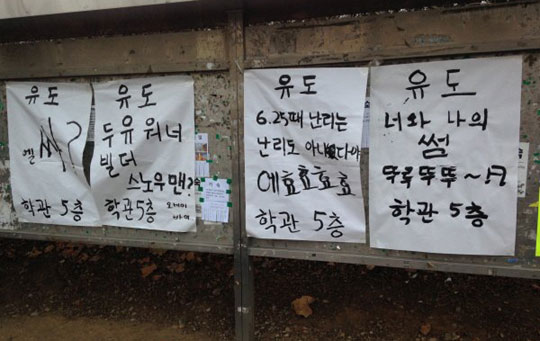 유도
엘 싸?
학관 5층
유도
두유워너
빌더
스노우맨?
학관 5층
오케이
바이
유도
6.25때 난리는
난리도 아니였다야
에효효효효
학관 5층
유도
너와 나의
썸
뚜루뚜뚜~♬
학관 5층